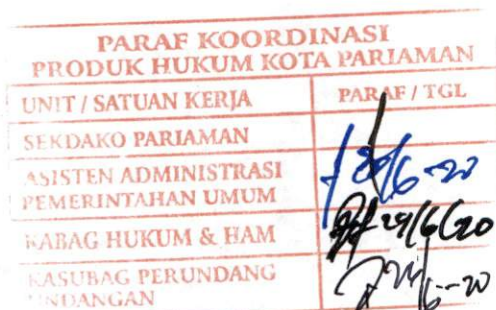 PARAF KOORDINASI
PRODUK HUKUM KOTA PARIAMAN
UNIT / SATUAN KERJA PARAF / TGL
SEKDAKO PARIAMAN
ASISTEN ADMINISTRASI
PEMERINTAHAN UMUM
KABAG HUKUM & HAM 29/6/20
KASUBAG PERUNDANG
UNDANGAN